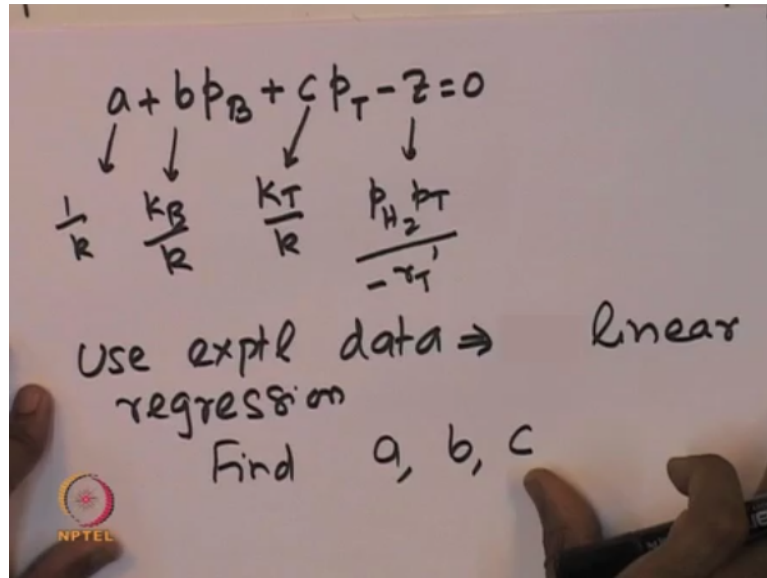 a + b p_B + c p_T - z = 0
1/k K_B/k K_T/k p_H2 p_T / -r_T'
Use exptl data ⇒ linear
regression
Find a, b, c
NPTEL